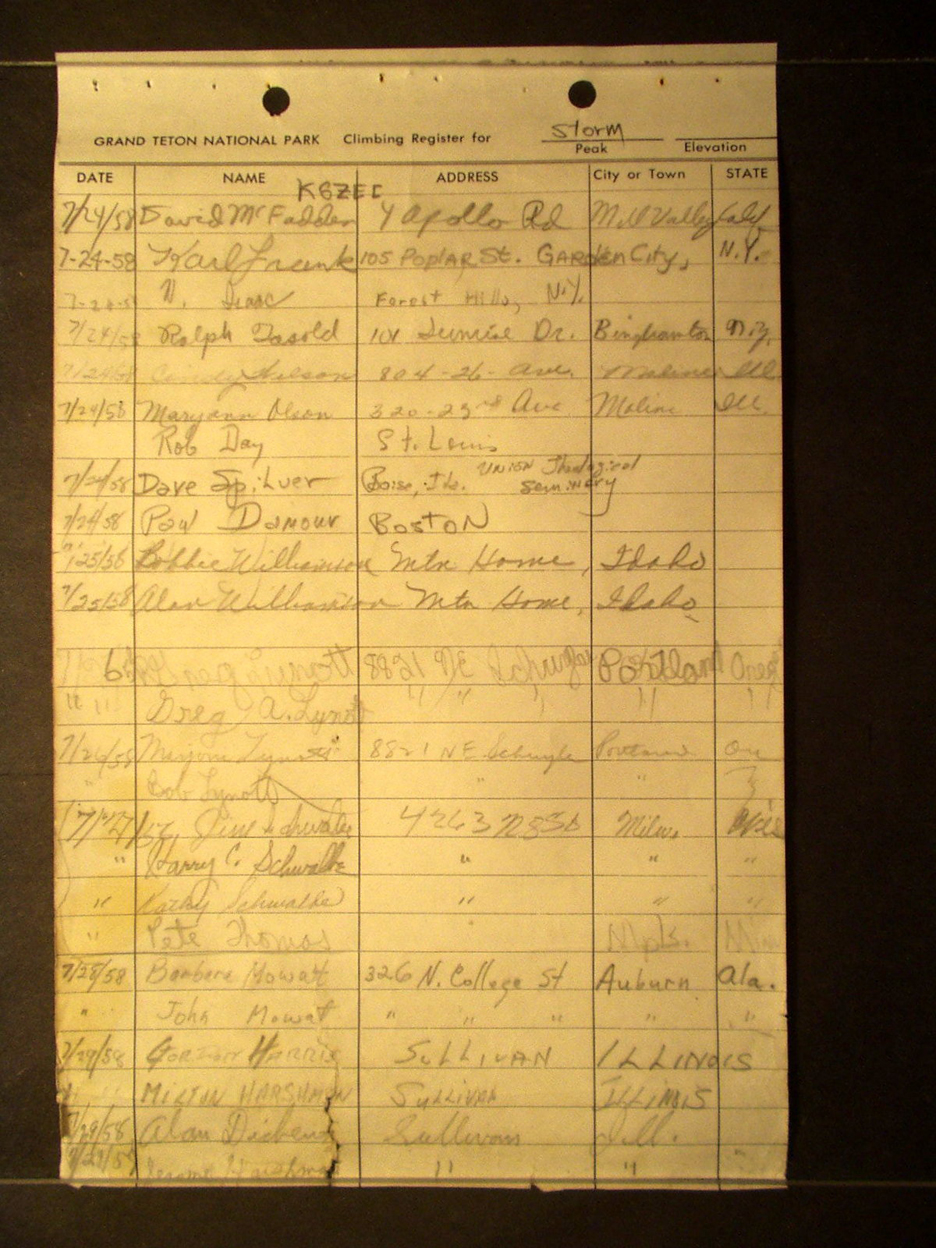 GRAND TETON NATIONAL PARK Climbing Register for Storm Peak Elevation
DATE NAME ADDRESS City or Town STATE
K6ZEC
7/24/58 David McFadden 4 Apollo Rd Mill Valley Calif
7-24-58 Karl Frank 105 Poplar St. GARDEN City, N.Y.
7-24-58 N. Isaac Forest Hills, N.Y.
7/24/58 Ralph 101 Sunrise Dr. Binghamton N.Y.
7/24/58 804-26- Ave. Moline Ill.
7/24/58 Maryann Olson 320-23rd Ave Moline Ill.
Rob Day St. Louis
7/24/58 Dave Boise, Ida. UNION Theological Seminary
7/24/58 Paul Damour BOSTON
7/25/58 Bobbie Williamson Mtn Home, Idaho
7/25/58 Alan Williamson Mtn Home, Idaho
Lynott 8821 NE Schuyler Portland Oreg
" " Greg A. Lynott " " " " "
7/26/58 Lynott 8821 NE Schuyler Portland Ore
" Bob Lynott " "
4263 N 83D Milw. Wis
" Harry C. Schwalbe " " "
" Kathy Schwalbe " " "
" Pete Thomas Mpls. Minn
7/28/58 Barbara Mowat 326 N. College St Auburn Ala.
" John Mowat " " " " "
7/29/58 GORDON HARRIS SULLIVAN ILLINOIS
" MILTON HARSHMAN SULLIVAN ILLINOIS
7/29/58 Alan Sullivan Ill.
7/29/58 " "